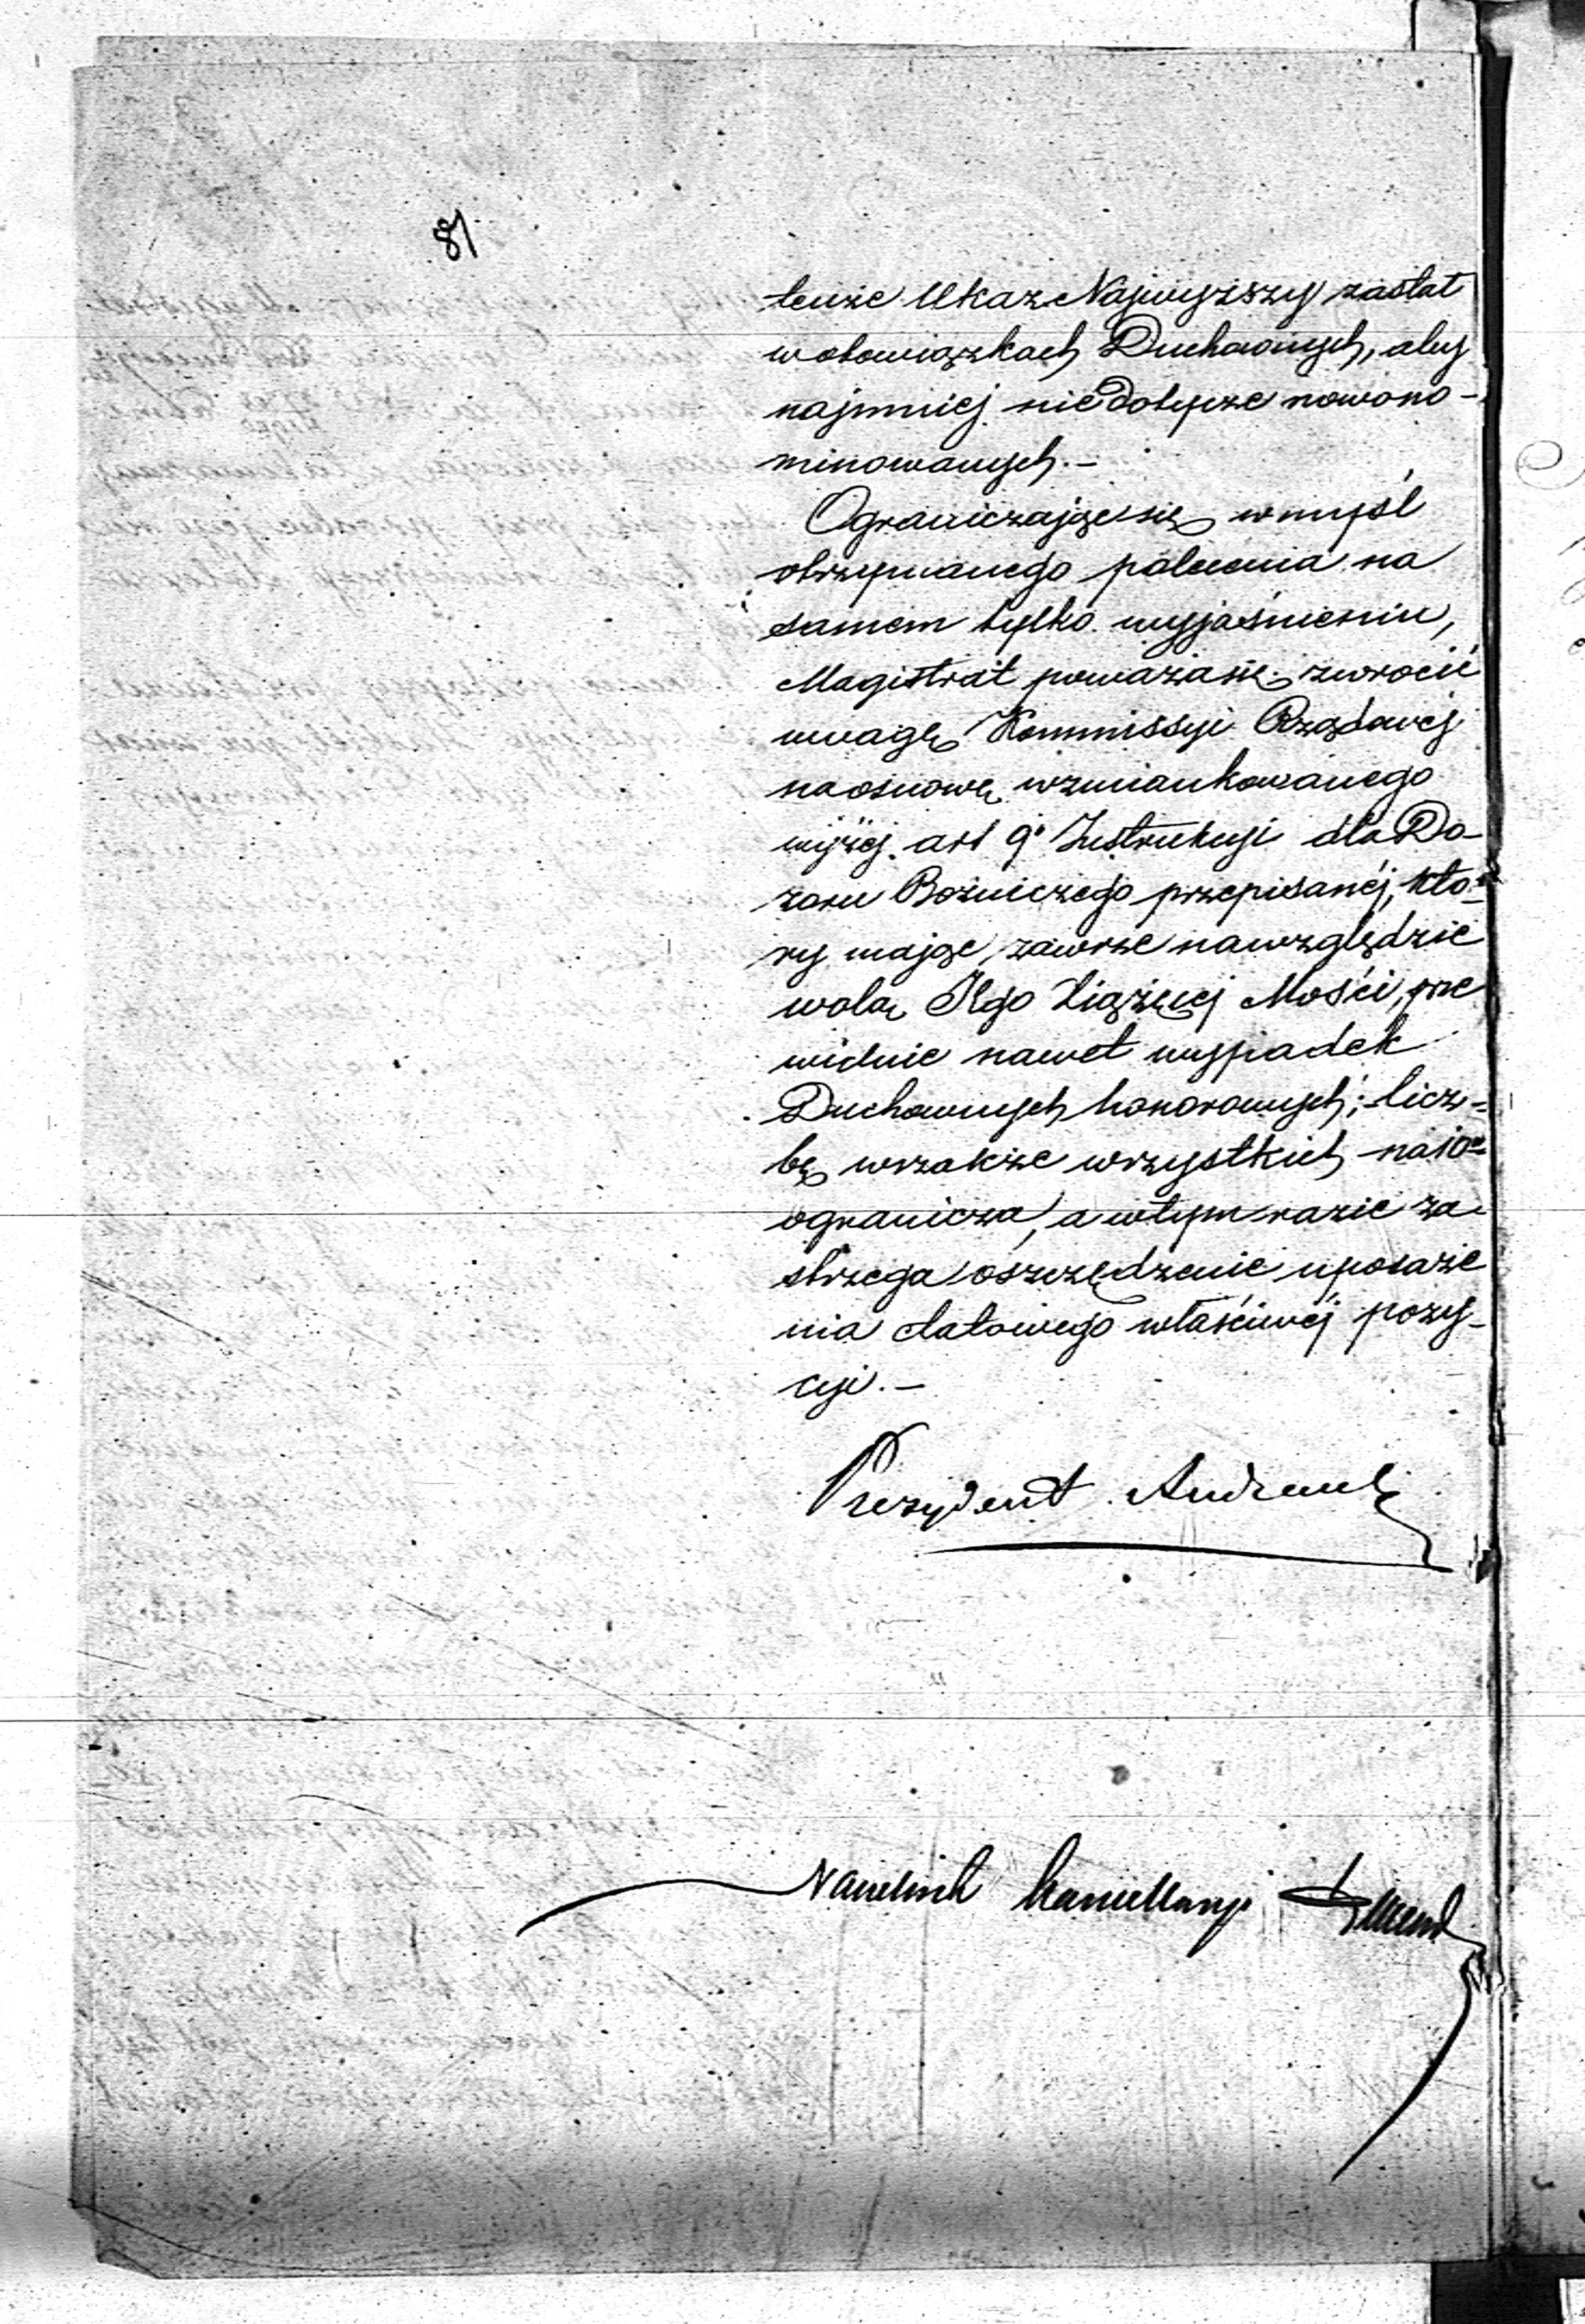 81
tenże Ukaz Najwyższy zastał
w obowiązkach Duchownych, aby
najmniej nie dotycze nowono-
minowanych.-
Ograniczając się w myśl
otrzymanego polecenia na
samem tylko wyjaśnieniu,
Magistrat poważa się zwrócić
uwagę Kommissyi Rządowéj
na osnowę wzmiankowanego
wyżéj art 9o Instrukcyi dla Do-
zoru Bożniczego przepisanéj, któ-
ry mając zawsze na względzie
wolą Jego Xiążęcej Mości, prze
widuie nawet wypadek
Duchownych honorowych; licz-
bę wszakże wszystkich na 10u
ogranicza, a w tym razie za-
strzega oszczędzenie uposaże
nia etatowego właściwéj pozy-
cyi.-
Prezydent
Naczelnik Kancellaryi